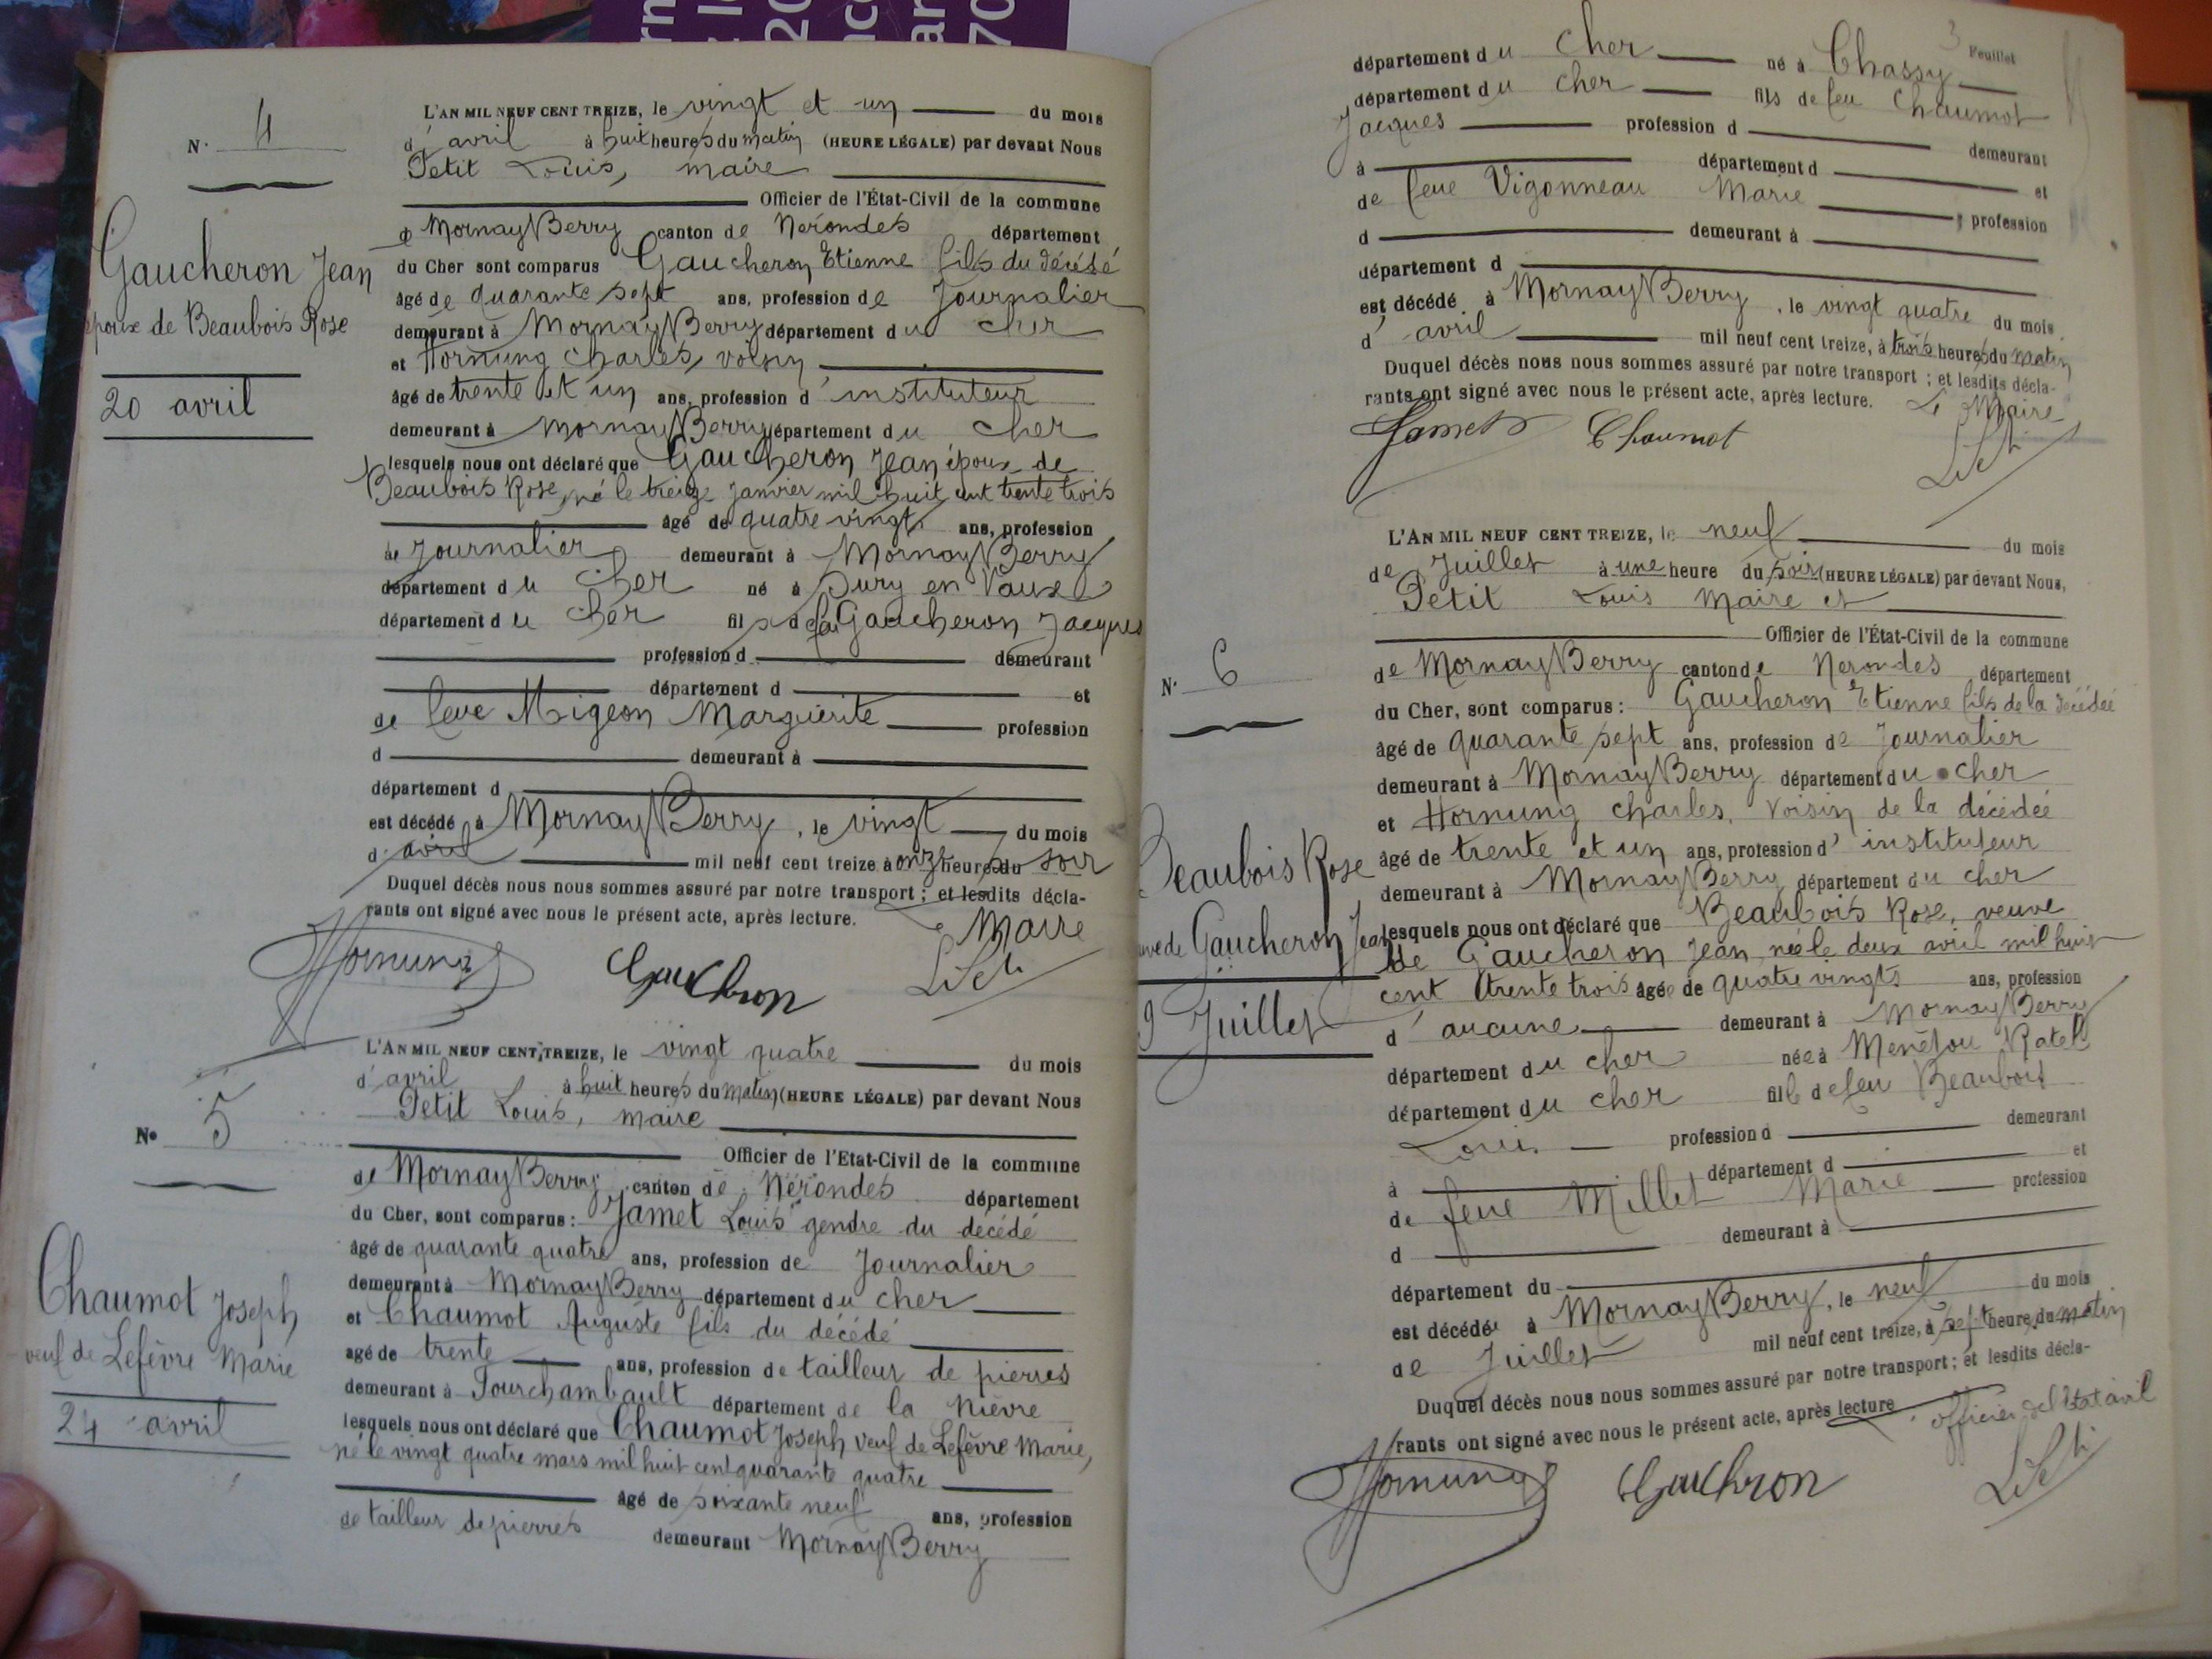 N. 4
Gaucheron Jean
époux de Beaubois Rose
20 avril
L'AN MIL NEUF CENT TREIZE, le vingt et un du mois
d'avril à huit heures du matin (HEURE LÉGALE) par devant Nous
Petit Louis, maire
Officier de l'État-Civil de la commune
d MornayBerry canton de Nérondes département
du Cher sont comparus Gaucheron Etienne fils du décédé
âgé de quarante sept ans, profession de Journalier
demeurant à MornayBerry département du cher
et Hornung charles, voisin
âgé de trente et un ans, profession d'instituteur
demeurant à MornayBerry département du cher
lesquels nous ont déclaré que Gaucheron Jean époux de
Beaubois Rose, né le treize Janvier mil huit cent trente trois
âgé de quatre vingts ans, profession
de Journalier demeurant à MornayBerry
département du cher né à Sury en Vaux
département du cher fils de feu Gaucheron Jacques
profession d demeurant
département d et
de feue Migeon Marguerite profession
d demeurant à
département d
est décédé à MornayBerry, le vingt du mois
d'avril mil neuf cent treize à onze heures du soir
Duquel décès nous nous sommes assuré par notre transport ; et lesdits décla-
rants ont signé avec nous le présent acte, après lecture.
Le Maire
Hornung Gaucheron Petit
No 5
Chaumot Joseph
veuf de Lefèvre Marie
24 avril
L'AN MIL NEUF CENT TREIZE, le vingt quatre du mois
d'avril à huit heures du matin (HEURE LÉGALE) par devant Nous
Petit Louis, maire
Officier de l'Etat-Civil de la commune
de MornayBerry canton de Nérondes département
du Cher, sont comparus : Jamet Louis gendre du décédé
âgé de quarante quatre ans, profession de Journalier
demeurant à MornayBerry département du cher
et Chaumot Auguste fils du décédé
agé de trente ans, profession de tailleur de pierres
demeurant à Fourchambault département de la Nièvre
lesquels nous ont déclaré que Chaumot Joseph veuf de Lefèvre Marie,
né le vingt quatre mars mil huit cent quarante quatre
âgé de soixante neuf ans, profession
de tailleur de pierres demeurant MornayBerry
3 Feuillet
département du Cher né à Chassy
département du cher fils de feu Chaumot
Jacques profession d
à département d demeurant
de feue Vigonneau Marie et
d demeurant à profession
département d
est décédé à MornayBerry, le vingt quatre du mois
d'avril mil neuf cent treize, à trois heures du matin
Duquel décès nous nous sommes assuré par notre transport ; et lesdits décla-
rants ont signé avec nous le présent acte, après lecture. Le Maire
Jamet Chaumot Petit
N. 6
Beaubois Rose
veuve de Gaucheron Jean
9 Juillet
L'AN MIL NEUF CENT TREIZE, le neuf du mois
de Juillet à une heure du soir (HEURE LÉGALE) par devant Nous,
Petit Louis Maire et
Officier de l'État-Civil de la commune
de MornayBerry canton de Nerondes département
du Cher, sont comparus : Gaucheron Etienne fils de la décédée
âgé de quarante sept ans, profession de Journalier
demeurant à MornayBerry département du cher
et Hornung charles, voisin de la décédée
âgé de trente et un ans, profession d'instituteur
demeurant à MornayBerry département du cher
lesquels nous ont déclaré que Beaubois Rose, veuve
de Gaucheron Jean née le deux avril mil huit
cent trente trois âgée de quatre vingts ans, profession
d'aucune demeurant à MornayBerry
département du cher née à Menétou Ratel
département du cher fille de feu Beaubois
Louis profession d demeurant
à département d et
de feue Millet Marie profession
d demeurant à
département du
est décédée à MornayBerry, le neuf du mois
de Juillet mil neuf cent treize, à sept heures du matin
Duquel décès nous nous sommes assuré par notre transport ; et lesdits décla-
rants ont signé avec nous le présent acte, après lecture officier de l'Etat civil
Hornung Gaucheron Petit